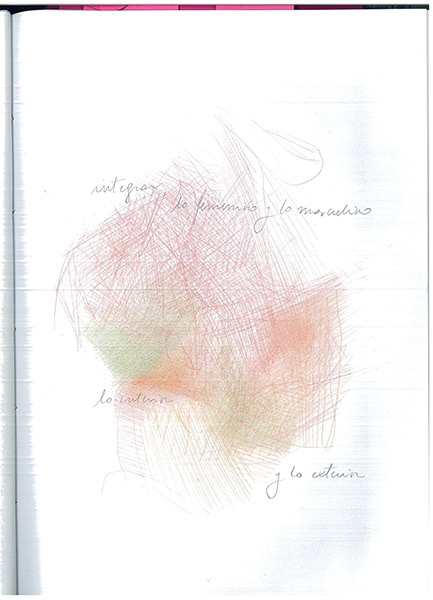 integrar
lo femenino y lo masculino
lo interior
y lo exterior